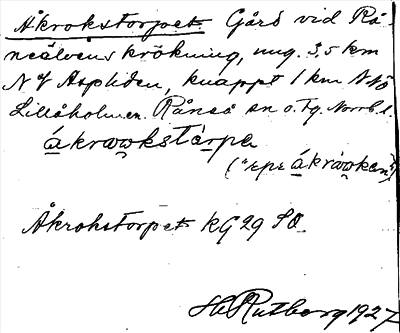 Åkrokstorpet. Gård vid Rå-
neälvens krökning, ung. 3,5 km
NV Aspliden, knappt 1 km NNÖ
Lillåholmen. Råneå sn o. tg. Norrb. l.
ákrωωkstàrpə
Åkrokstorpet KG 29 SO.
H Rutberg 1927